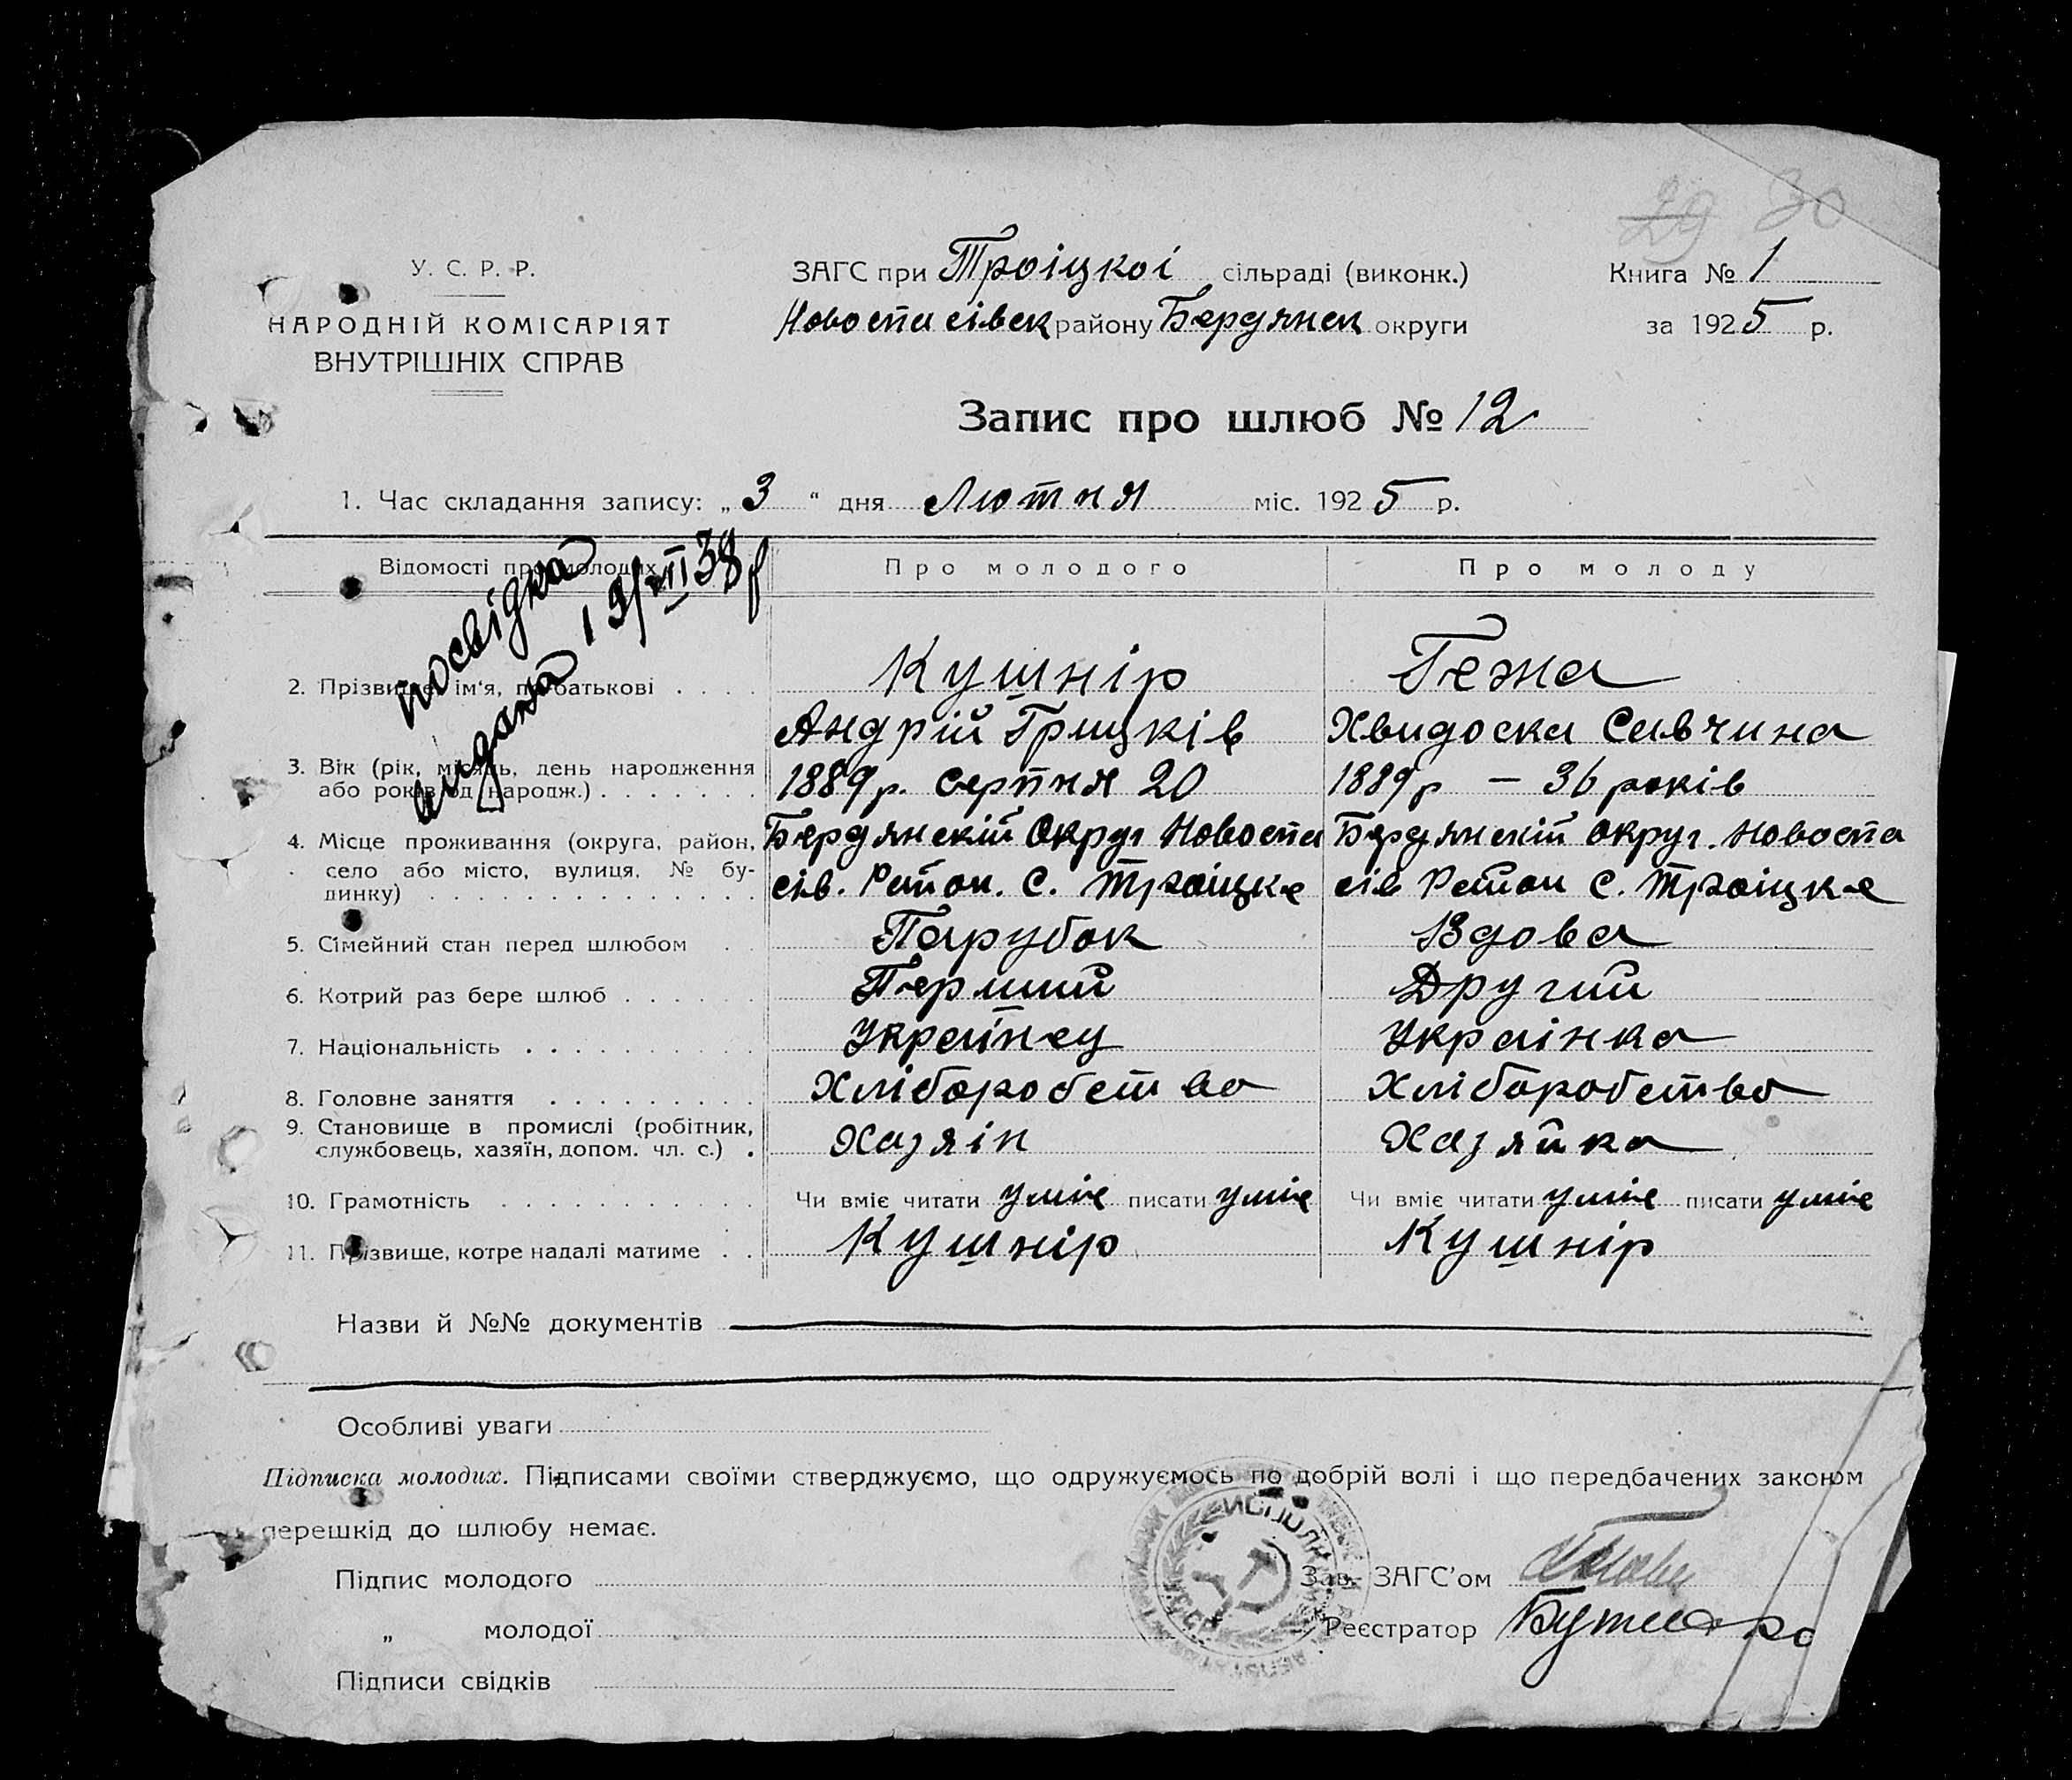 29 30
У. С. Р. Р.
НАРОДНІЙ КОМІСАРІЯТ
ВНУТРІШНІХ СПРАВ
ЗАГС при Троіцкоі сільраді (виконк.)
Новоспасівск району Бердянск округи
Книга № 1
за 1925 р.
Запис про шлюб № 12
1. Час складання запису: „3“ дня Лютня міс. 1925 р.
Відомості про молодих
Про молодого
Про молоду
посвідка
видана 19/VII 38 р
2. Прізвище, ім'я, по батькові . . . .
Кушнір
Андрій Грицків
Гежа
Хвидоска Савчина
3. Вік (рік, місяць, день народження
або років од народж.) . . . . . . .
1889 р. Серпня 20
1889 р — 36 років
4. Місце проживання (округа, район,
село або місто, вулиця, № бу-
динку) . . . . . . . . . . . . . . .
Бердянскій Округ Новоспа
сів. Район. С. Троіцке
Бердянскій Округ. Новоспа
сів Район С. Троіцке
5. Сімейний стан перед шлюбом .
Парубок
Вдова
6. Котрий раз бере шлюб . . . . .
Перший
Другий
7. Національність . . . . . . . . .
Украінец
Украінка
8. Головне заняття . . . . . . . . .
Хліборобство
Хліборобство
9. Становище в промислі (робітник,
службовець, хазяїн, допом. чл. с.) .
Хазяін
Хазяйка
10. Грамотність . . . . . . . . . . .
Чи вміє читати уміє писати уміє
Чи вміє читати уміє писати уміє
11. Прізвище, котре надалі матиме . .
Кушнір
Кушнір
Назви й №№ документів
Особливі уваги
Підписка молодих. Підписами своїми стверджуємо, що одружуємось по добрій волі і що передбачених законом
перешкід до шлюбу немає.
Підпис молодого
„ молодої
Підписи свідків
Зав. ЗАГС'ом
Реєстратор